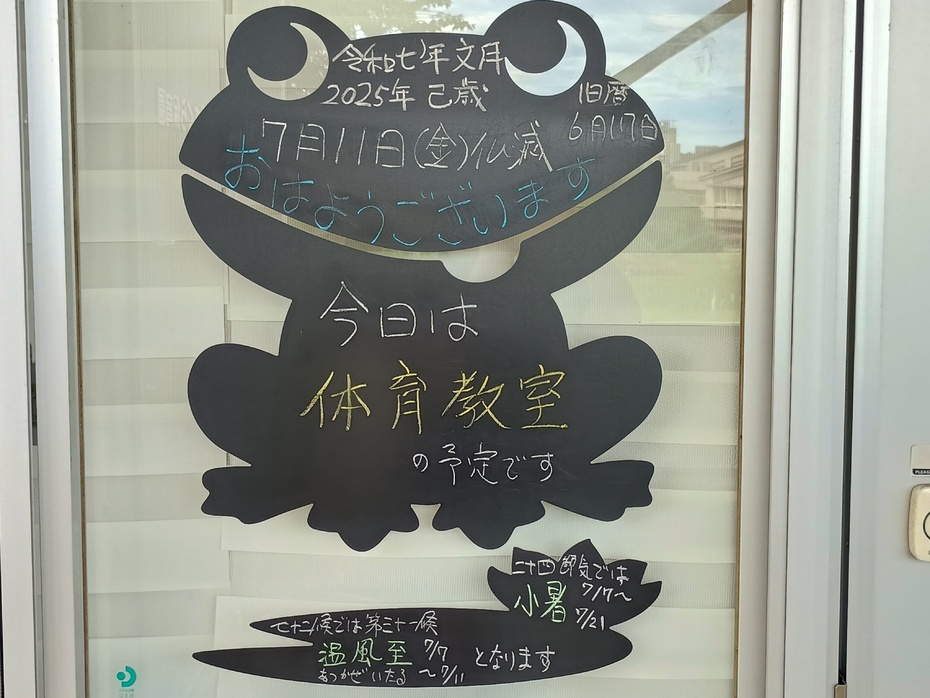 令和七年文月
2025年 己歳
旧暦
6月17日
7月11日(金)仏滅
おはようございます
今日は
体育教室
の予定です
二十四節気では
小暑 7/7～
7/21
七十二候では第三十一候
温風至 7/7
あつかぜいたる ～7/11
となります